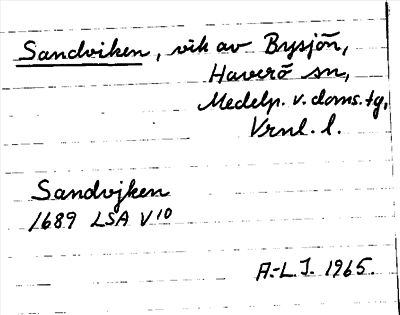 Sandviken, vik av Bysjön,
Haverö sn,
Medelp. v. doms. tg,
Vrnl. l.
Sandvijken
1689 LSA V 10
A.-L J. 1965.